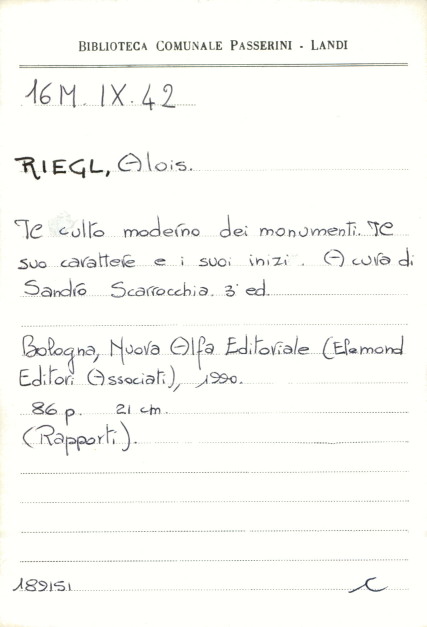 BIBLIOTECA COMUNALE PASSERINI - LANDI
16M. IX. 42
RIEGL, Alois.
Il culto moderno dei monumenti. Il
suo carattere e i suoi inizi. A cura di
Sandro Scarrocchia. 3ª ed.
Bologna, Nuova Alfa Editoriale (Elemond
Editori Associati), 1990.
86 p. 21 cm.
(Rapporti).
189151